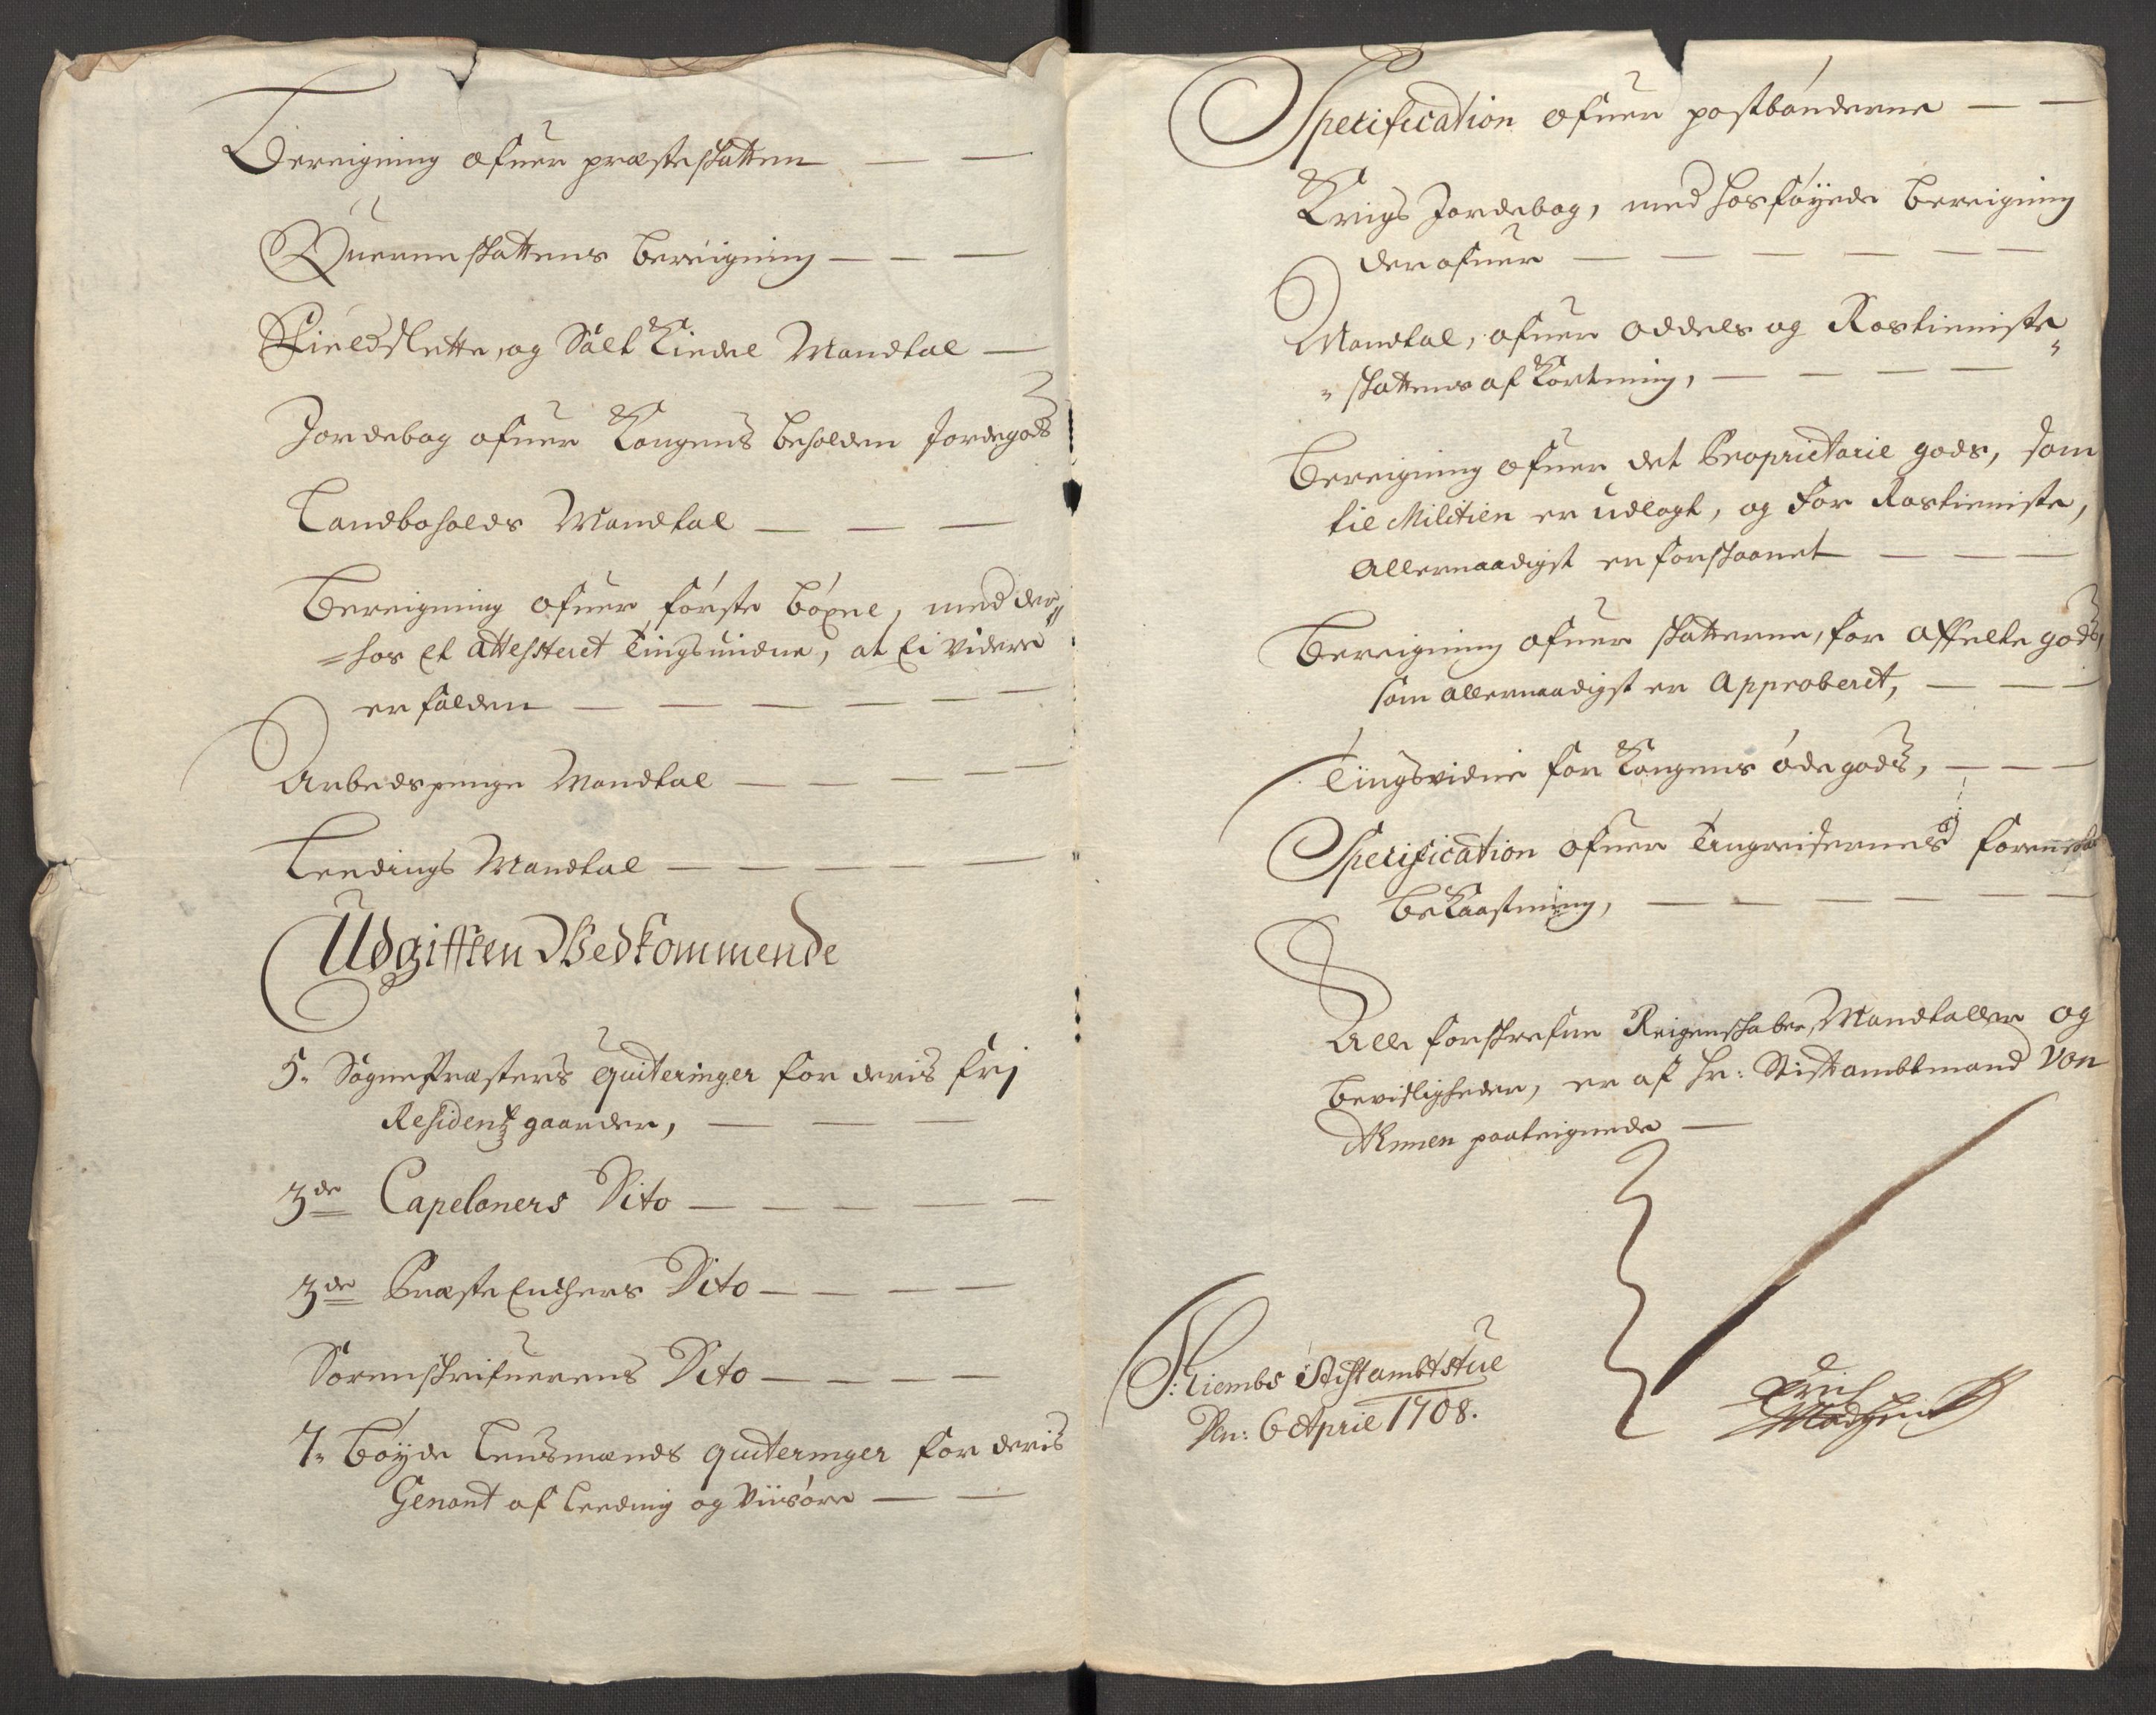 Bereigning ofuer præsteskatten — —
Querneskattens bereigning — — —
Fieldslette, og Salt Kiedel Mandtal —
Jordebog ofuer Kongens beholden Jordegods
Landboholds Mandtal — — —
Bereigning ofuer første böxel, med der„
„hos et attesteret Tingsuidne, at Ei videre
er falden — — — — — —
Arbeedspenge Mandtal — — — — —
Leedings Mandtal — — — — —
Udgifften Vedkommende
5. SognePræsters quiteringer for deris frj
Residentz gaarder, — — —
3de Capeloners Dito — — — — —
3de Præste Enchers Dito — — — —
Sorenskrifuerens Dito — — — —
7. böyde Lensmænds quiteringer for deris
Genant af Leeding og Viisöre — —
Specification ofuer postbönderne — —
Krigs Jordebog, med hosföyede bereigning
derofuer — — — — — —
Mandtal, ofuer oddels og Rostieniste„
„skattens af Kortning, — — — —
Bereigning ofuer det Proprietarie gods, som
til Militien er udlagt, og for Rostieniste,
Allernaadigst er forskaanet — — —
Bereigning ofuer skatterne, for affelte gods,
som allernaadigst er Approberet, — — —
Tiingsvidne for Kongens öde gods, — — —
Specification ofuer Tingreisernes
beKaastning, — — — — —
Alle forskrefne Reigenskaber, Mandtaller og
bevisligheder, er af Hr: Stiftambtmand Von
Ahnen paateignede —
T:hiembs Stiftambtstue
Den: 6 April 1708.